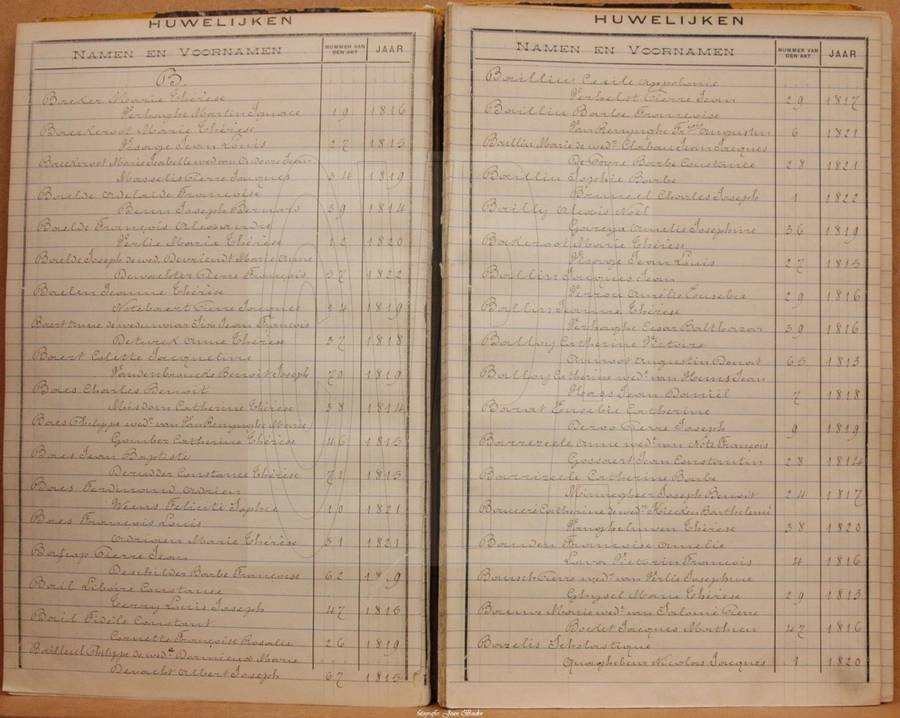 HUWELIJKEN
NAMEN EN VOORNAMEN NUMMER VAN DEN AKT JAAR
B.
Baeker Marie Thérèse
Verhaghe Martin Ignace 19 1816
Baeckeroot Marie Thérèse
Visage Jean Louis 27 1815
Marie Isabelle wed van Jean
Masselis Pierre Jacques 34 1819
Baelde Adelaïde Françoise
Benn Joseph Bernard 39 1814
Baelde François Alexandre
Verlie Marie Thérèse 12 1820
Baelde Joseph de wed. Devriendt Marie Anne
Dewachter Pierre François 37 1822
Baelen Jeanne Thérèse
Notebaert Pierre Jacques 24 1819
Baert Jean François
Deturck Anne Thérèse 37 1818
Baert Colette Jacqueline
Vandenbroucke Benoit Joseph 70 1819
Baes Charles Benoit
Misdom Catherine Thérèse 38 1814
Baes Philippe wedr. van Van Remynghe Marie
Gomber Catherine Thérèse 46 1815
Baes Jean Baptiste
Derudder Constance Thérèse 71 1815
Baes Ferdinand Adrien
Weens Félicité Sophie 10 1821
Baes François Louis
Adriaen Marie Thérèse 31 1821
Pierre Jean
Deschilder Barbe Françoise 62 1819
Bail Liboire Constance
Terry Louis Joseph 47 1815
Bail Fidèle Constant
Cornette Françoise Rosalie 26 1819
Bailleul Philippe de wedr. Dormieux Marie
Devacht Albert Joseph 67 1815
HUWELIJKEN
NAMEN EN VOORNAMEN NUMMER VAN DEN AKT JAAR
Bailliu Cecile Appolonie
Verhelst Pierre Jean 29 1817
Bailliu Barbe Françoise
Van Remynghe Augustin 6 1821
Bailliu Marie de wede. Clabau Jean Jacques
Barbe Constance 28 1821
Bailliu Sophie Barbe
Bruneel Charles Joseph 1 1822
Bailly Alexis Noël
Gareyn Amelie Josephine 36 1819
Bakeroot Marie Thérèse
Visage Jean Louis 27 1815
Ballin Jacques Jean
Amélie Eusebie 29 1816
Ballin Jeanne Thérèse
Verhaghe Cesar Balthazar 39 1816
Balloy Catherine Victoire
Augustin Benoit 65 1815
Balloy Catherine wede. van Hems Jean
Haes Jean Daniel 7 1818
Barat Eusebie Catherine
Deroo Pierre Joseph 9 1819
Barrezeele Anne wede. van Note François
Gossaert Jean Constantin 28 1814
Barrezeele Catherine Barbe
Minnegheer Joseph Benoit 24 1817
Catherine de wede. Barthelemi
Vanghelwen Thérèse 38 1820
Bauden Françoise Amelie
Lava Victorin François 4 1816
Bausch Pierre wedr. van Verlie Josephine
Ghysel Marie Thérèse 29 1815
Bauwe Marie wede. van Salomé Pierre
Boedet Jacques Mathieu 47 1816
Bazelis Scholastique
Quaghebeur Nicolas Jacques 1 1820